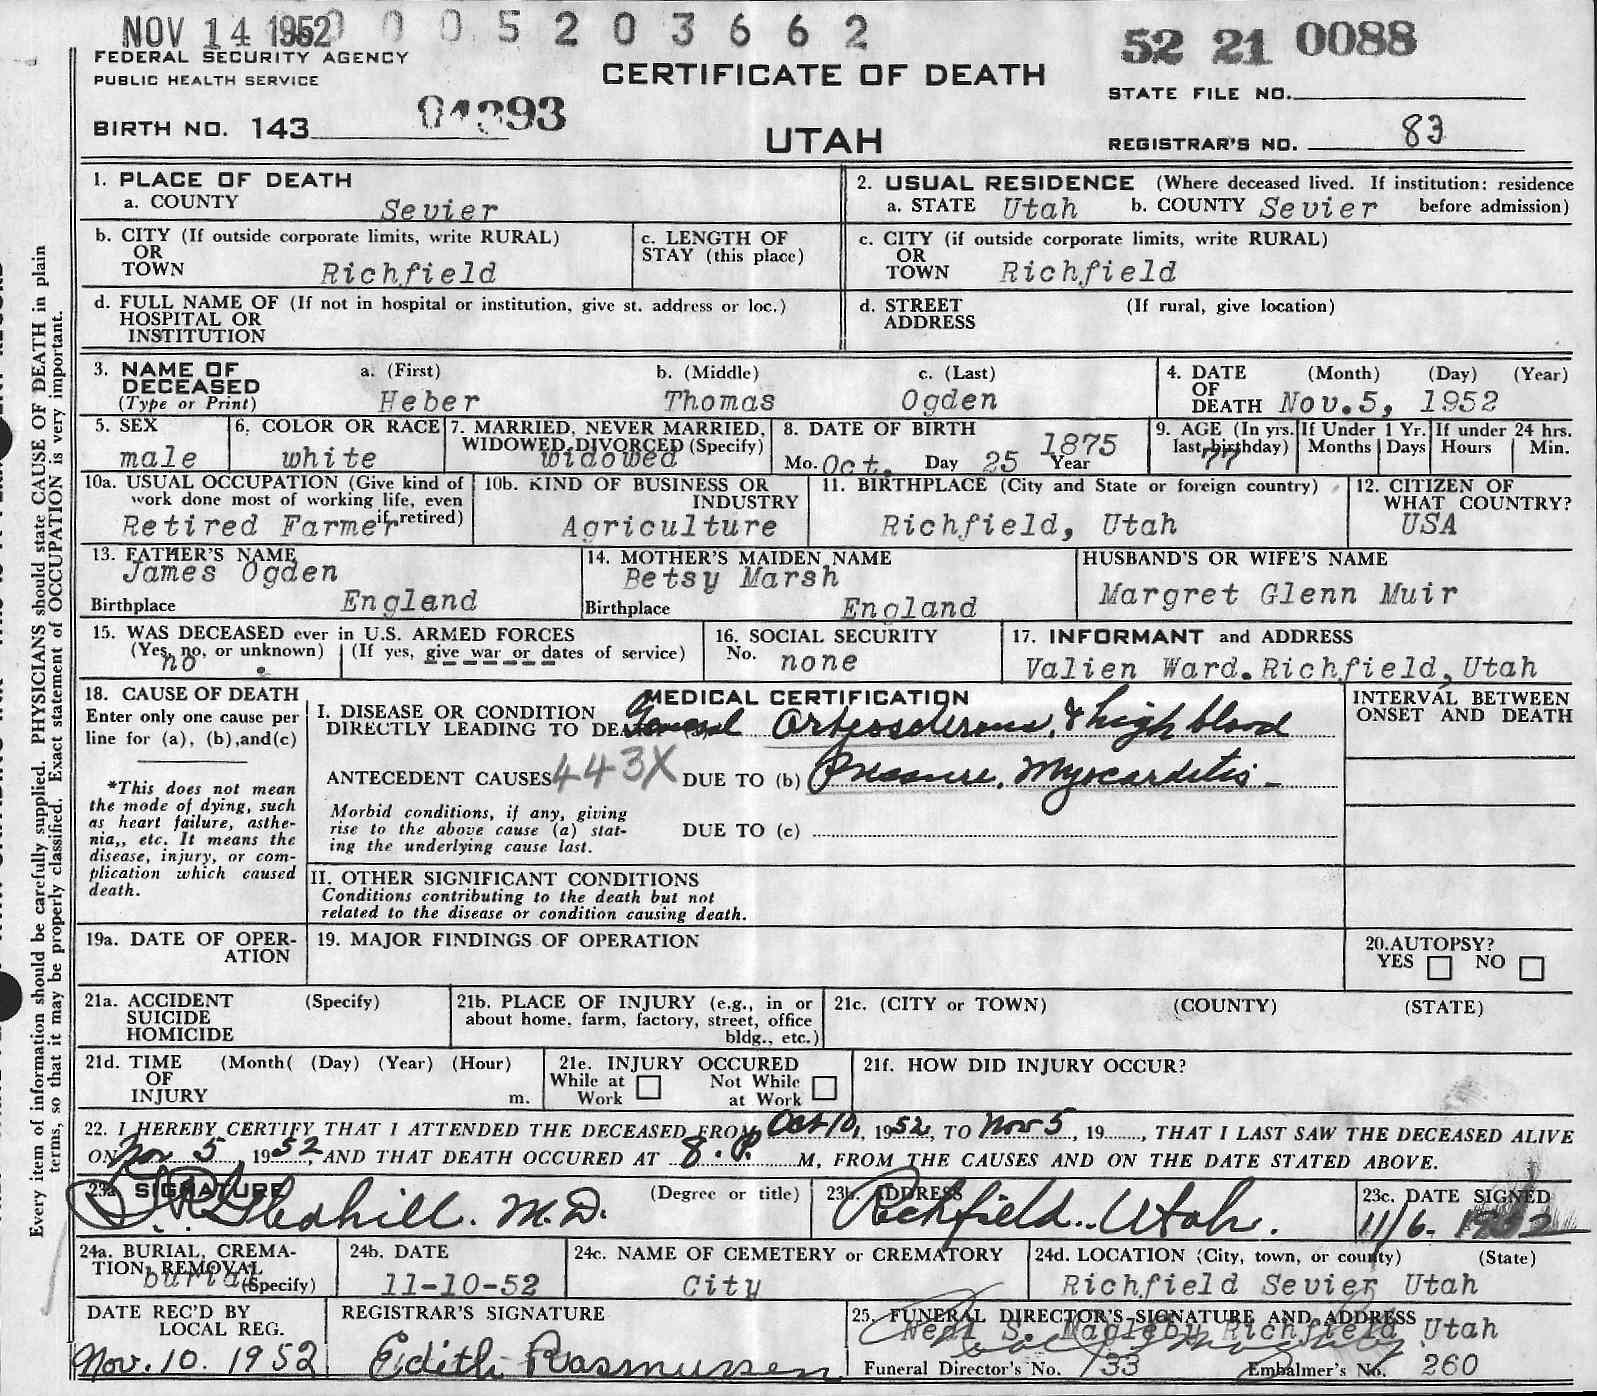 NOV 14 1952 0 0 0 5 2 0 3 6 6 2
52 21 0088
FEDERAL SECURITY AGENCY
PUBLIC HEALTH SERVICE
CERTIFICATE OF DEATH
STATE FILE NO.
BIRTH NO. 143
UTAH
REGISTRAR'S NO. 83
1. PLACE OF DEATH
a. COUNTY Sevier
2. USUAL RESIDENCE (Where deceased lived. If institution: residence before admission)
a. STATE Utah b. COUNTY Sevier
b. CITY (If outside corporate limits, write RURAL)
OR
TOWN Richfield
c. LENGTH OF
STAY (this place)
c. CITY (if outside corporate limits, write RURAL)
OR
TOWN Richfield
d. FULL NAME OF (If not in hospital or institution, give st. address or loc.)
HOSPITAL OR
INSTITUTION
d. STREET (If rural, give location)
ADDRESS
3. NAME OF
DECEASED
(Type or Print)
a. (First) b. (Middle) c. (Last)
Heber Thomas Ogden
4. DATE (Month) (Day) (Year)
OF
DEATH Nov. 5, 1952
5. SEX
male
6. COLOR OR RACE
white
7. MARRIED, NEVER MARRIED,
WIDOWED, DIVORCED (Specify)
widowed
8. DATE OF BIRTH
Mo. Oct. Day 25 Year 1875
9. AGE (In yrs. last birthday)
77
If Under 1 Yr.
Months Days
If under 24 hrs.
Hours Min.
10a. USUAL OCCUPATION (Give kind of
work done most of working life, even
if retired)
Retired Farmer
10b. KIND OF BUSINESS OR
INDUSTRY
Agriculture
11. BIRTHPLACE (City and State or foreign country)
Richfield, Utah
12. CITIZEN OF
WHAT COUNTRY?
USA
13. FATHER'S NAME
James Ogden
Birthplace England
14. MOTHER'S MAIDEN NAME
Betsy Marsh
Birthplace England
HUSBAND'S OR WIFE'S NAME
Margret Glenn Muir
15. WAS DECEASED ever in U.S. ARMED FORCES
(Yes, no, or unknown) (If yes, give war or dates of service)
no
16. SOCIAL SECURITY
No. none
17. INFORMANT and ADDRESS
Valien Ward. Richfield, Utah
18. CAUSE OF DEATH
Enter only one cause per
line for (a), (b), and (c)
*This does not mean
the mode of dying, such
as heart failure, asthe-
nia,, etc. It means the
disease, injury, or com-
plication which caused
death.
MEDICAL CERTIFICATION
I. DISEASE OR CONDITION
DIRECTLY LEADING TO DEATH General Arteriosclerosis, & high blood
ANTECEDENT CAUSES 443X DUE TO (b) Pressure. Myocarditis -
Morbid conditions, if any, giving
rise to the above cause (a) stat-
ing the underlying cause last.
DUE TO (c)
INTERVAL BETWEEN
ONSET AND DEATH
II. OTHER SIGNIFICANT CONDITIONS
Conditions contributing to the death but not
related to the disease or condition causing death.
19a. DATE OF OPER-
ATION
19. MAJOR FINDINGS OF OPERATION
20. AUTOPSY?
YES NO
21a. ACCIDENT (Specify)
SUICIDE
HOMICIDE
21b. PLACE OF INJURY (e.g., in or
about home, farm, factory, street, office
bldg., etc.)
21c. (CITY or TOWN) (COUNTY) (STATE)
21d. TIME (Month( (Day) (Year) (Hour)
OF
INJURY m.
21e. INJURY OCCURED
While at Work Not While at Work
21f. HOW DID INJURY OCCUR?
22. I HEREBY CERTIFY THAT I ATTENDED THE DECEASED FROM Oct 10, 1952, TO Nov 5, 19......, THAT I LAST SAW THE DECEASED ALIVE
ON Nov 5, 1952, AND THAT DEATH OCCURED AT 8. P. M, FROM THE CAUSES AND ON THE DATE STATED ABOVE.
23a. SIGNATURE (Degree or title)
Gledhill. M.D.
23b. ADDRESS
Richfield. Utah.
23c. DATE SIGNED
11/6. 1952
24a. BURIAL, CREMA-
TION, REMOVAL
(Specify)
burial
24b. DATE
11-10-52
24c. NAME OF CEMETERY or CREMATORY
City
24d. LOCATION (City, town, or county) (State)
Richfield Sevier Utah
DATE REC'D BY
LOCAL REG.
Nov. 10. 1952
REGISTRAR'S SIGNATURE
Edith Rasmussen
25. FUNERAL DIRECTOR'S SIGNATURE AND ADDRESS
Neal S. Magleby Richfield Utah
Funeral Director's No. 133 Embalmer's No. 260
Every item of information should be carefully supplied. PHYSICIANS should state CAUSE OF DEATH in plain
terms, so that it may be properly classified. Exact statement of OCCUPATION is very important.